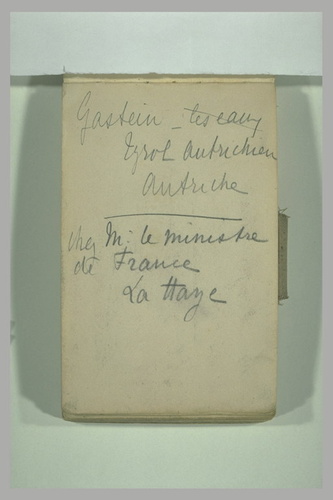 Gastein - les eaux
Tyrol Autrichien
Autriche
chez Mr. le ministre
de France
La Haye